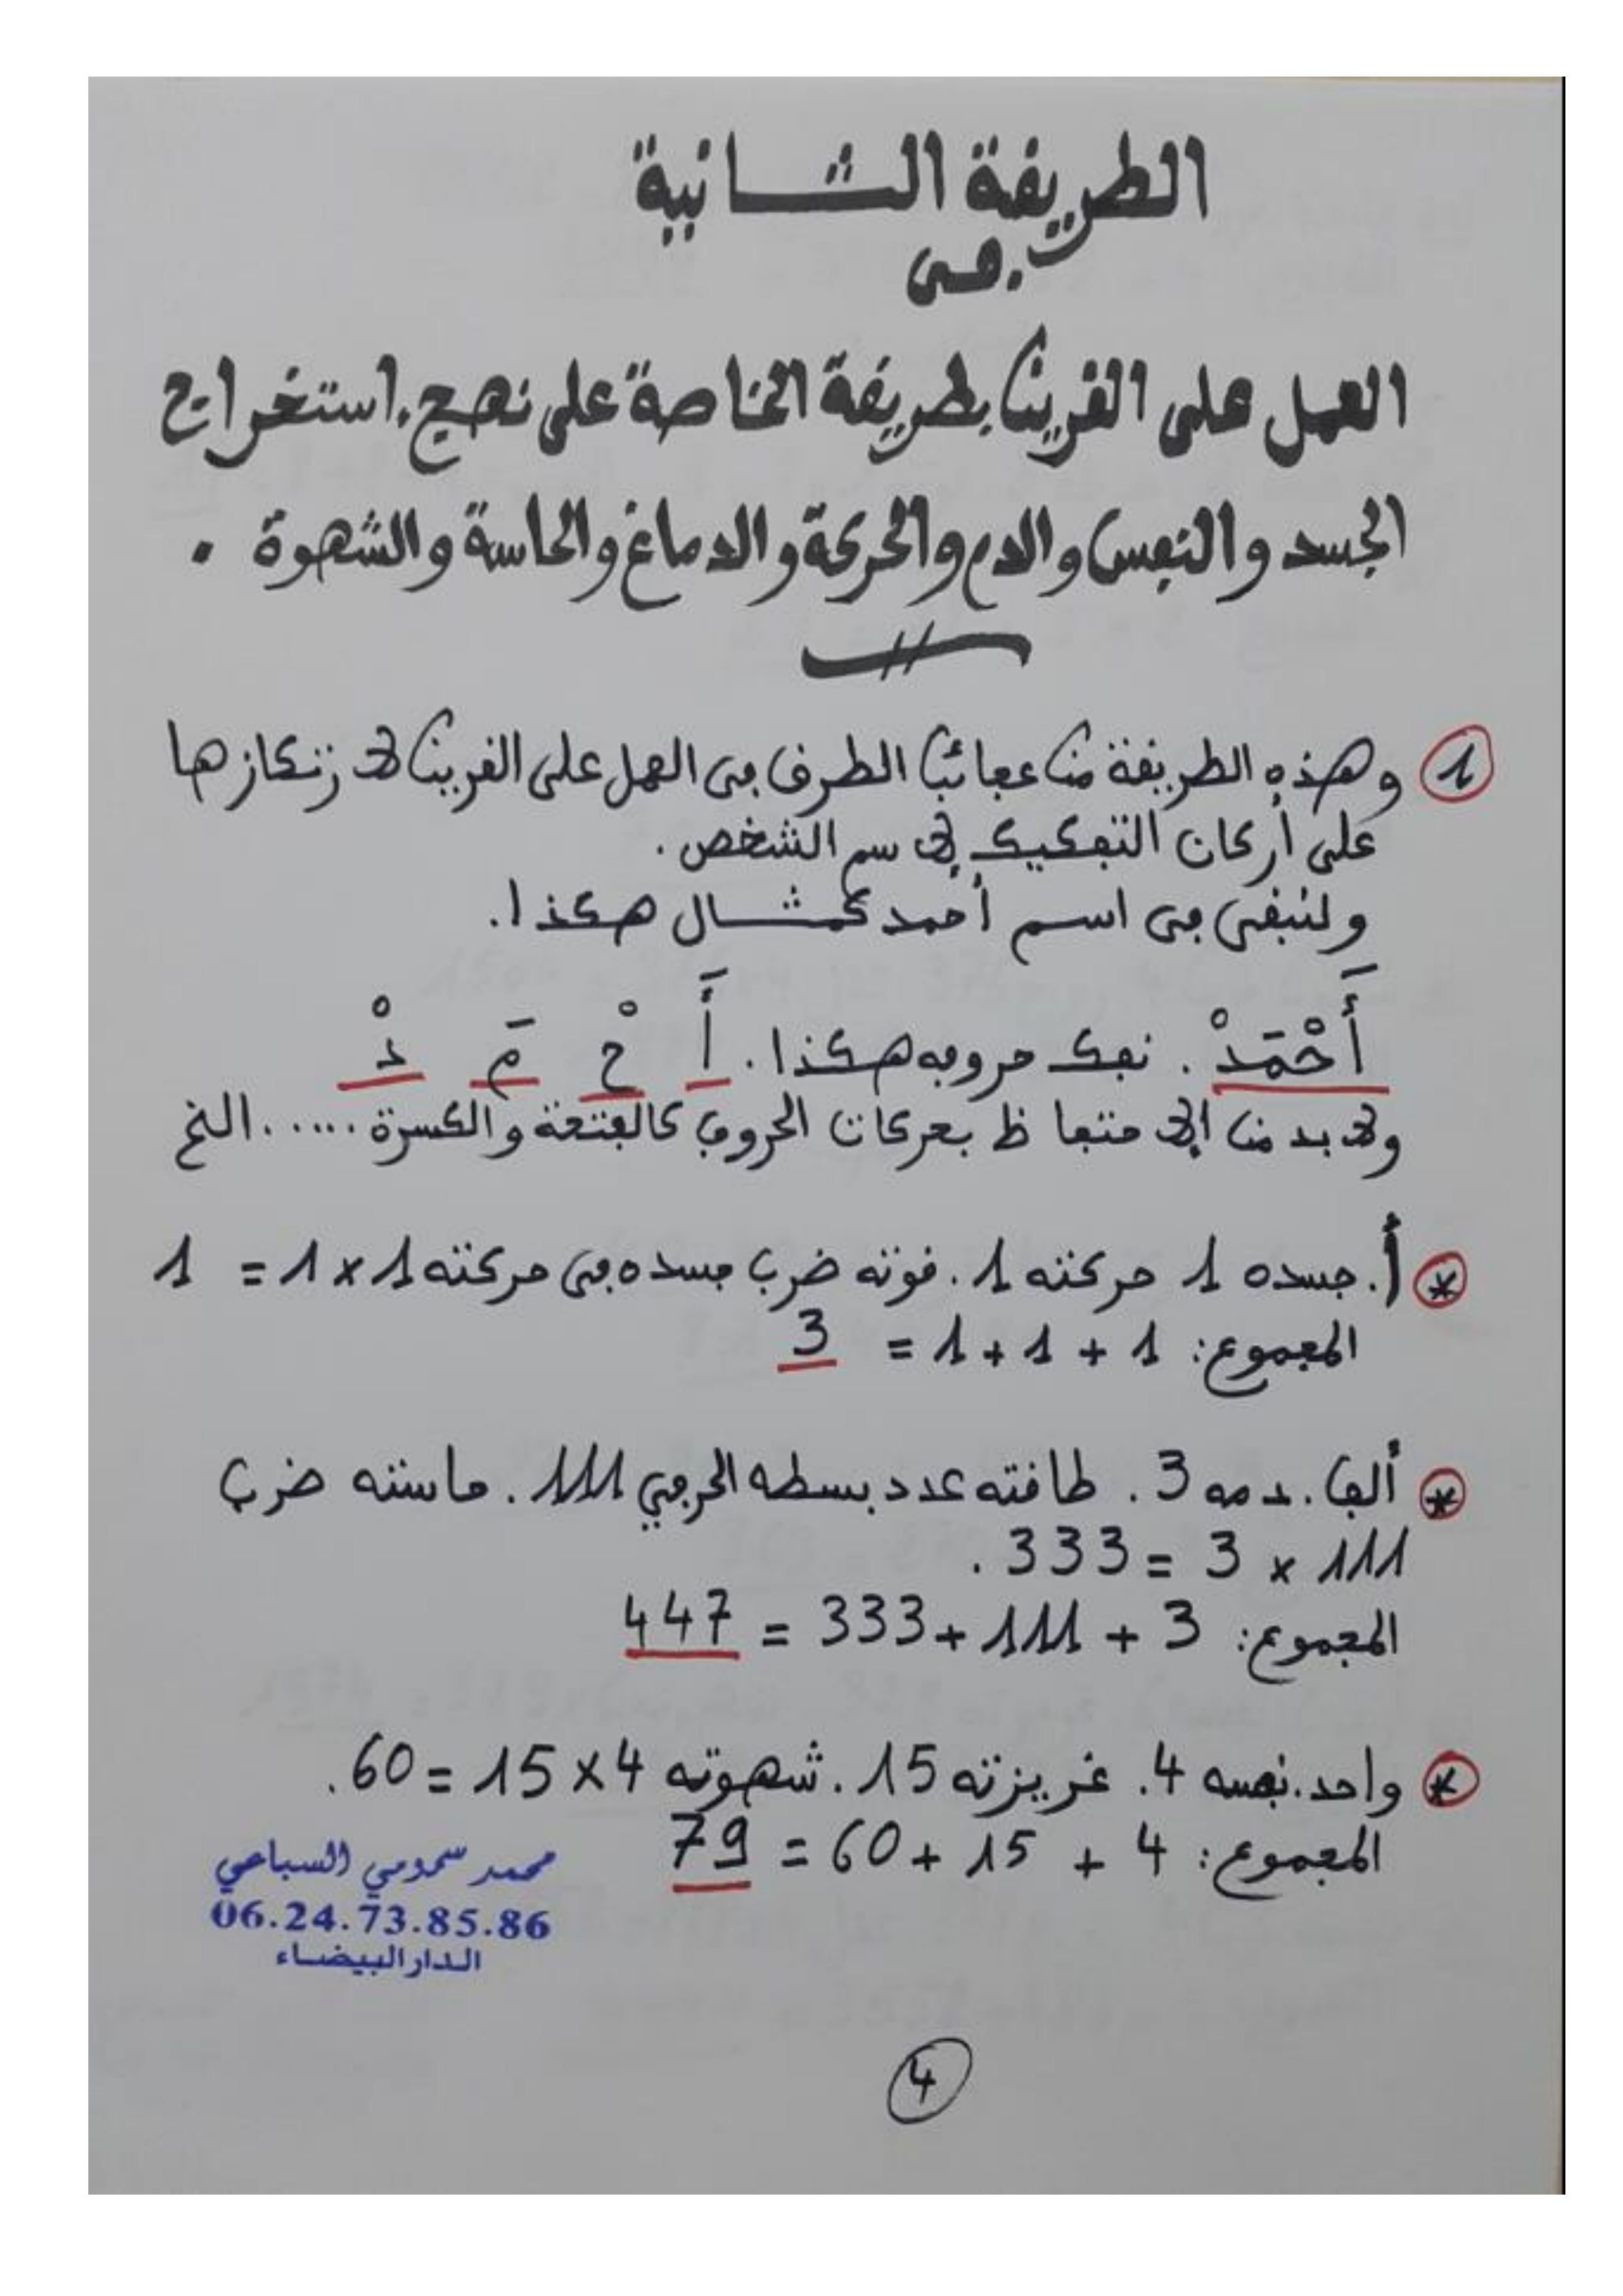 الطريقة الثانية
في
العمل على القرين بطريقة الخاصة على نهج استخراج
الجسد والنفس والدم والحركة والدماغ والحاسة والشهوة .
1 وهذه الطريقة من عجائب الطرق في العمل على القرين لارتكازها
على أركان التفكيك لإسم الشخص .
ولنبقى في اسم أحمد كمثال هكذا .
أَحْمَدْ . نفك حروفه هكذا . أَ حْ مَ دْ
ولابد من الإحتفاظ بحركات الحروف كالفتحة والكسرة ..... الخ
* أ . جسده 1 حركته 1 . قوته ضرب جسده في حركته 1 × 1 = 1
المجموع : 1 + 1 + 1 = 3
* ألف . دمه 3 . طاقته عدد بسطه الحرفي 111 . حاسته ضرب
111 × 3 = 333 .
المجموع : 3 + 111 + 333 = 447
* واحد . نفسه 4 . غريزته 15 . شهوته 4 × 15 = 60 .
المجموع : 4 + 15 + 60 = 79
محمد سمومي السباعي
06.24.73.85.86
الدار البيضاء
4